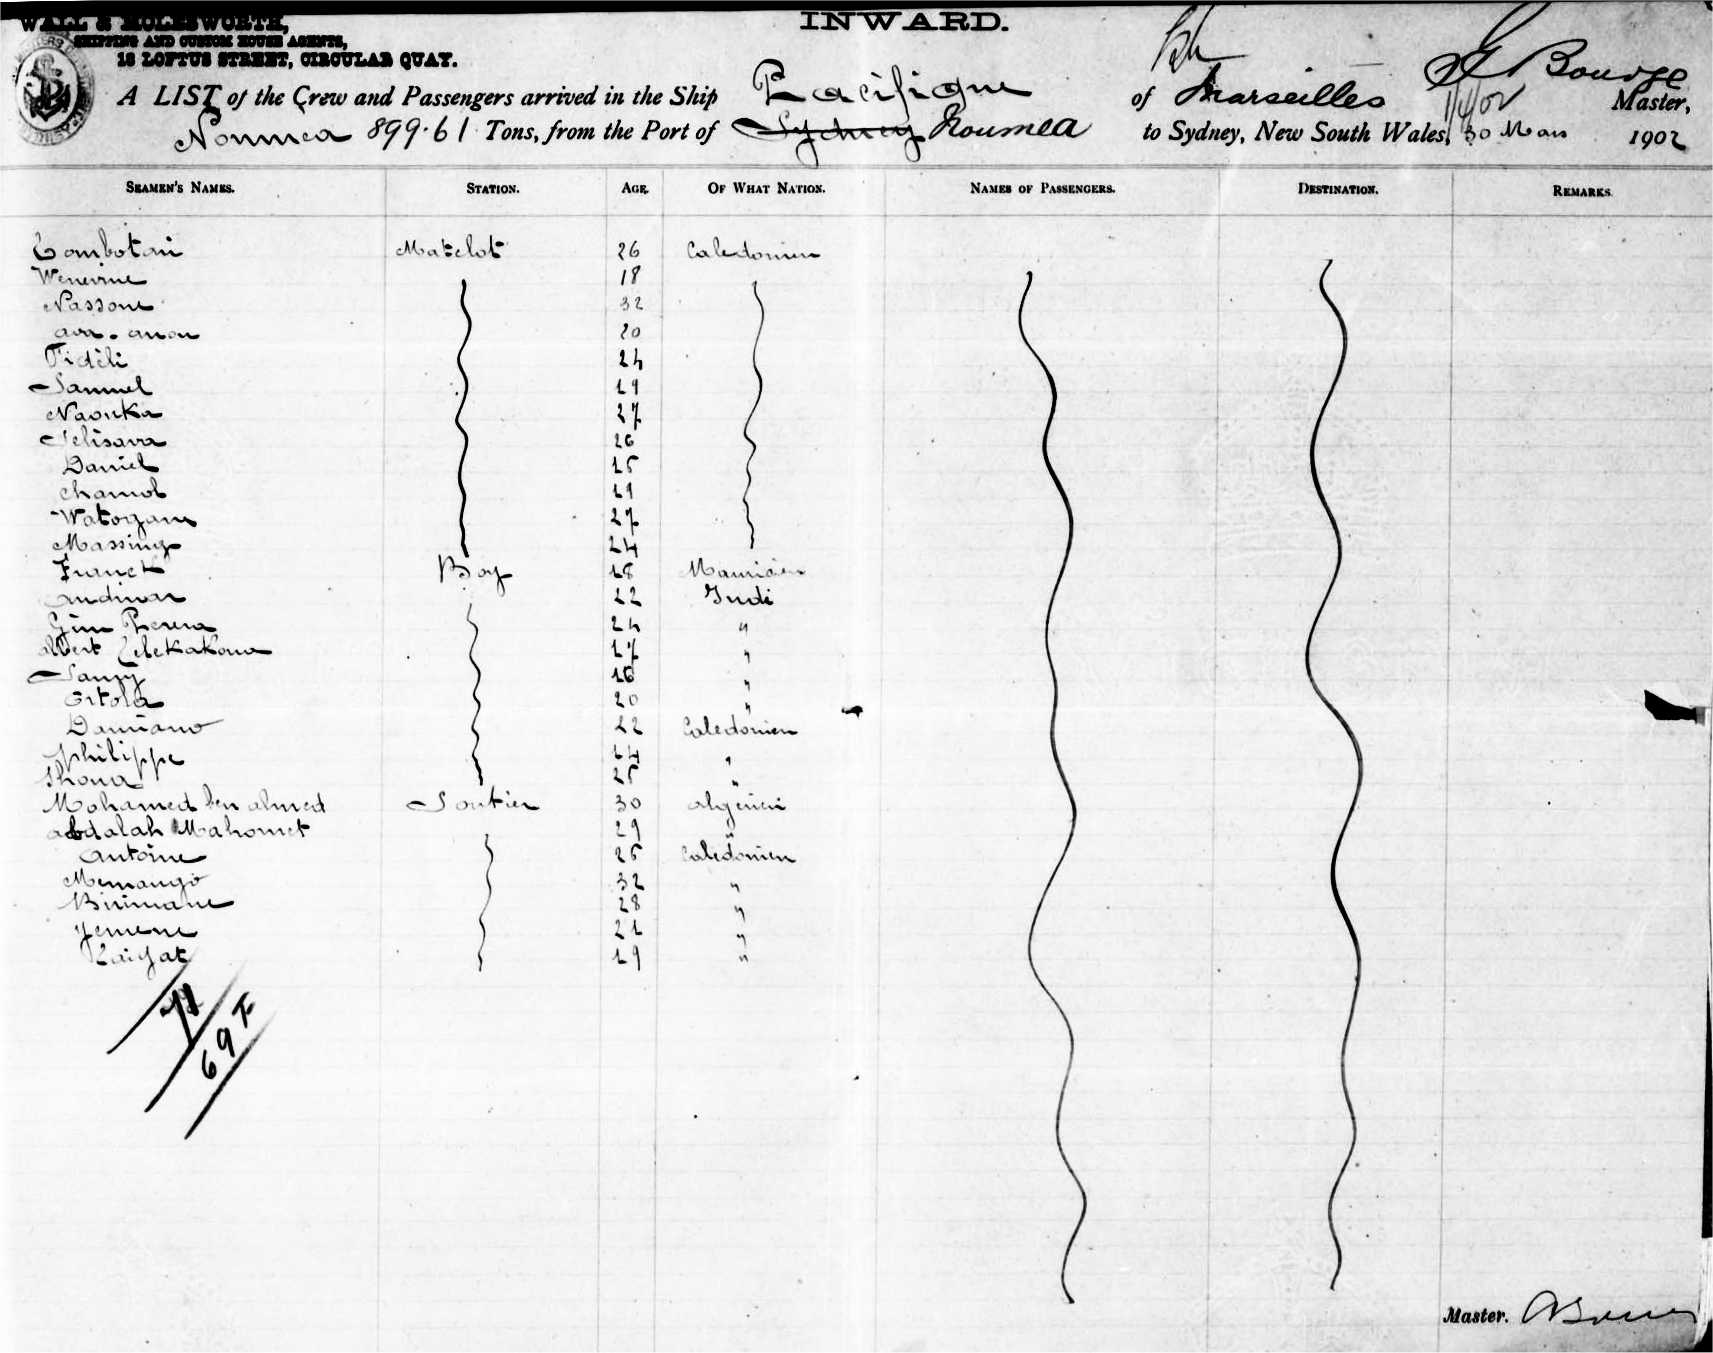 WALL & MOLESWORTH,
SHIPPING AND CUSTOM HOUSE AGENTS,
18 LOFTUS STREET, CIRCULAR QUAY.
INWARD.
A LIST of the Crew and Passengers arrived in the Ship Pacifique of Marseilles Bourge Master,
Noumea 899.61 Tons, from the Port of Sydney Noumea to Sydney, New South Wales, 30 Mars 1902
SEAMEN'S NAMES. STATION. AGE. OF WHAT NATION. NAMES OF PASSENGERS. DESTINATION. REMARKS.
Tombotai Matelot 26 Caledonien
18
Nassone 32
20
Fidèli 24
Samuel 19
Naouka 27
Selisava 26
Daniel 25
19
27
Massing 24
Boy 18
22 Indi
Perera 24 "
Albert 17 "
Samy 16 "
20 "
Damiano 22 Caledonien
Philippe 14 "
25 "
Mohamed ben ahmed Soutier 30 algerien
abdalah Mahomet 29 "
Antoine 25 Caledonien
Memango 32 "
Birimane 28 "
Yemene 21 "
19 "
69
Master.